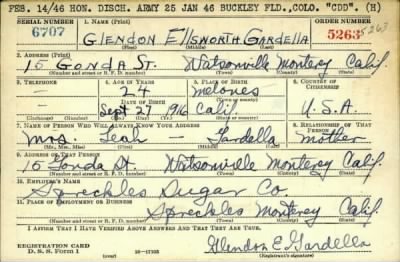 FEB. 14/46 HON. DISCH. ARMY 25 JAN 46 BUCKLEY FLD., COLO. "CDD". (H)
SERIAL NUMBER 1. NAME (Print) ORDER NUMBER
6707 Glendon Ellsworth Gardella 5263 5263
(First) (Middle) (Last)
2. ADDRESS (Print)
15 Gonda St. Watsonville Monterey Calif.
(Number and street or R. F. D. number) (Town) (County) (State)
3. TELEPHONE 4. AGE IN YEARS 5. PLACE OF BIRTH 6. COUNTRY OF CITIZENSHIP
24 Melones
DATE OF BIRTH (Town or county)
Sept 27 1916 Calif. U.S.A.
(Exchange) (Number) (Mo.) (Day) (Yr.) (State or country)
7. NAME OF PERSON WHO WILL ALWAYS KNOW YOUR ADDRESS 8. RELATIONSHIP OF THAT PERSON
Mrs. Leah — Gardella Mother
(Mr., Mrs., Miss) (First) (Middle) (Last)
9. ADDRESS OF THAT PERSON
15 Gonda St. Watsonville Monterey Calif.
(Number and street or R. F. D. number) (Town) (County) (State)
10. EMPLOYER'S NAME
Spreckles Sugar Co.
11. PLACE OF EMPLOYMENT OR BUSINESS
Spreckles Monterey Calif.
(Number and street or R. F. D. number) (Town) (County) (State)
I AFFIRM THAT I HAVE VERIFIED ABOVE ANSWERS AND THAT THEY ARE TRUE.
REGISTRATION CARD
D. S. S. Form 1 16—17105 Glendon E. Gardella
(Registrant's signature)